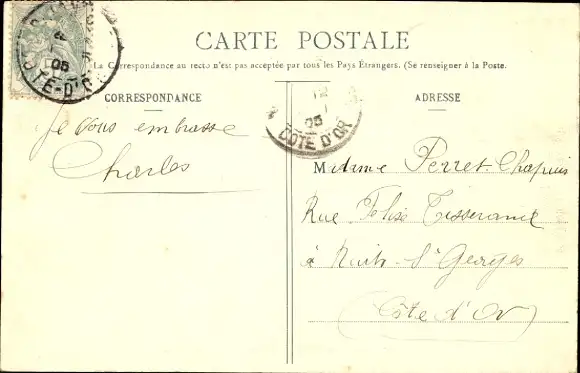 CARTE POSTALE
La Correspondance au recto n'est pas acceptée par tous les Pays Étrangers. (Se renseigner à la Poste.
CORRESPONDANCE
ADRESSE
Je vous embrasse
Charles
05
CÔTE-D'OR
05
CÔTE D'OR
Madame Perret-Chapuis
Rue Félix Tisserand
à Nuits-St Georges
(Côte d'Or)